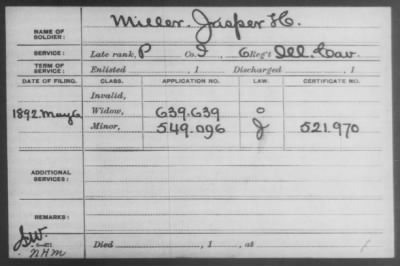 Miller. Jasper H.
NAME OF SOLDIER:
SERVICE: Late rank, P Co. I, 6 Reg't Ill. Cav.
TERM OF SERVICE: Enlisted , 1 Discharged , 1
DATE OF FILING. CLASS. APPLICATION NO. LAW. CERTIFICATE NO.
Invalid,
1892 May 6 Widow, 639.639 O
Minor, 549.096 J 521.970
ADDITIONAL SERVICES:
REMARKS:
NHM
Died , 1 , at